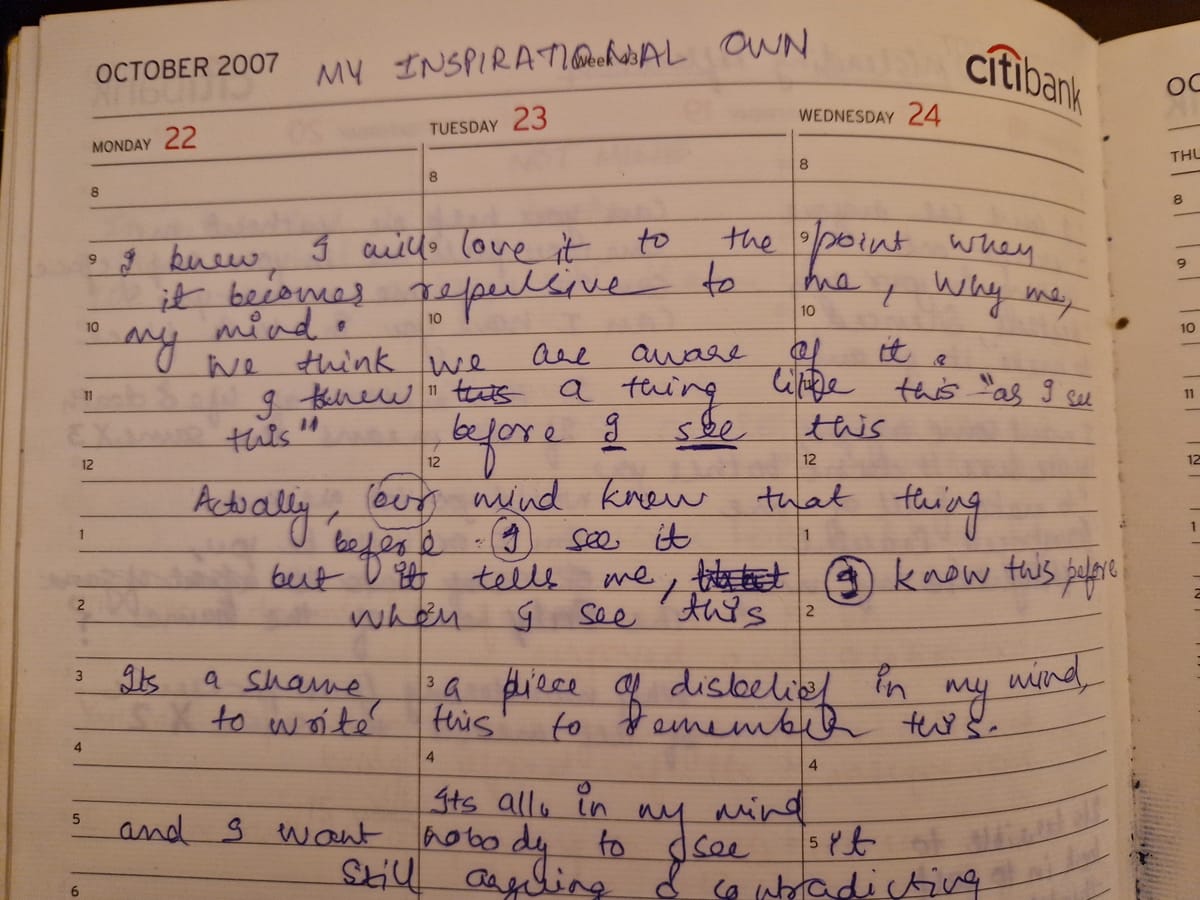 OCTOBER 2007 MY INSPIRATIONAL OWN citibank
Week 43
MONDAY 22 TUESDAY 23 WEDNESDAY 24
8 8 8
9 I knew, I will 9 love it to the 9 point when
it becomes repulsive to me, why me,
10 my mind. 10 10
We think we are aware of it.
11 I knew 11 this a thing like this "as I see
this" before I see this
12 12 12
Actually, our mind knew that thing
1 before I see it 1
but it tells me, I know this before
2 when 2 I see this 2
3 Its a shame, 3 a piece of disbelief 3 in my mind,
to write this to remember this.
4 4 4
Its all in my mind
5 and I want nobody to see 5 it
Still arguing & contradicting
6
OC
THU
8
9
10
11
12
1
2